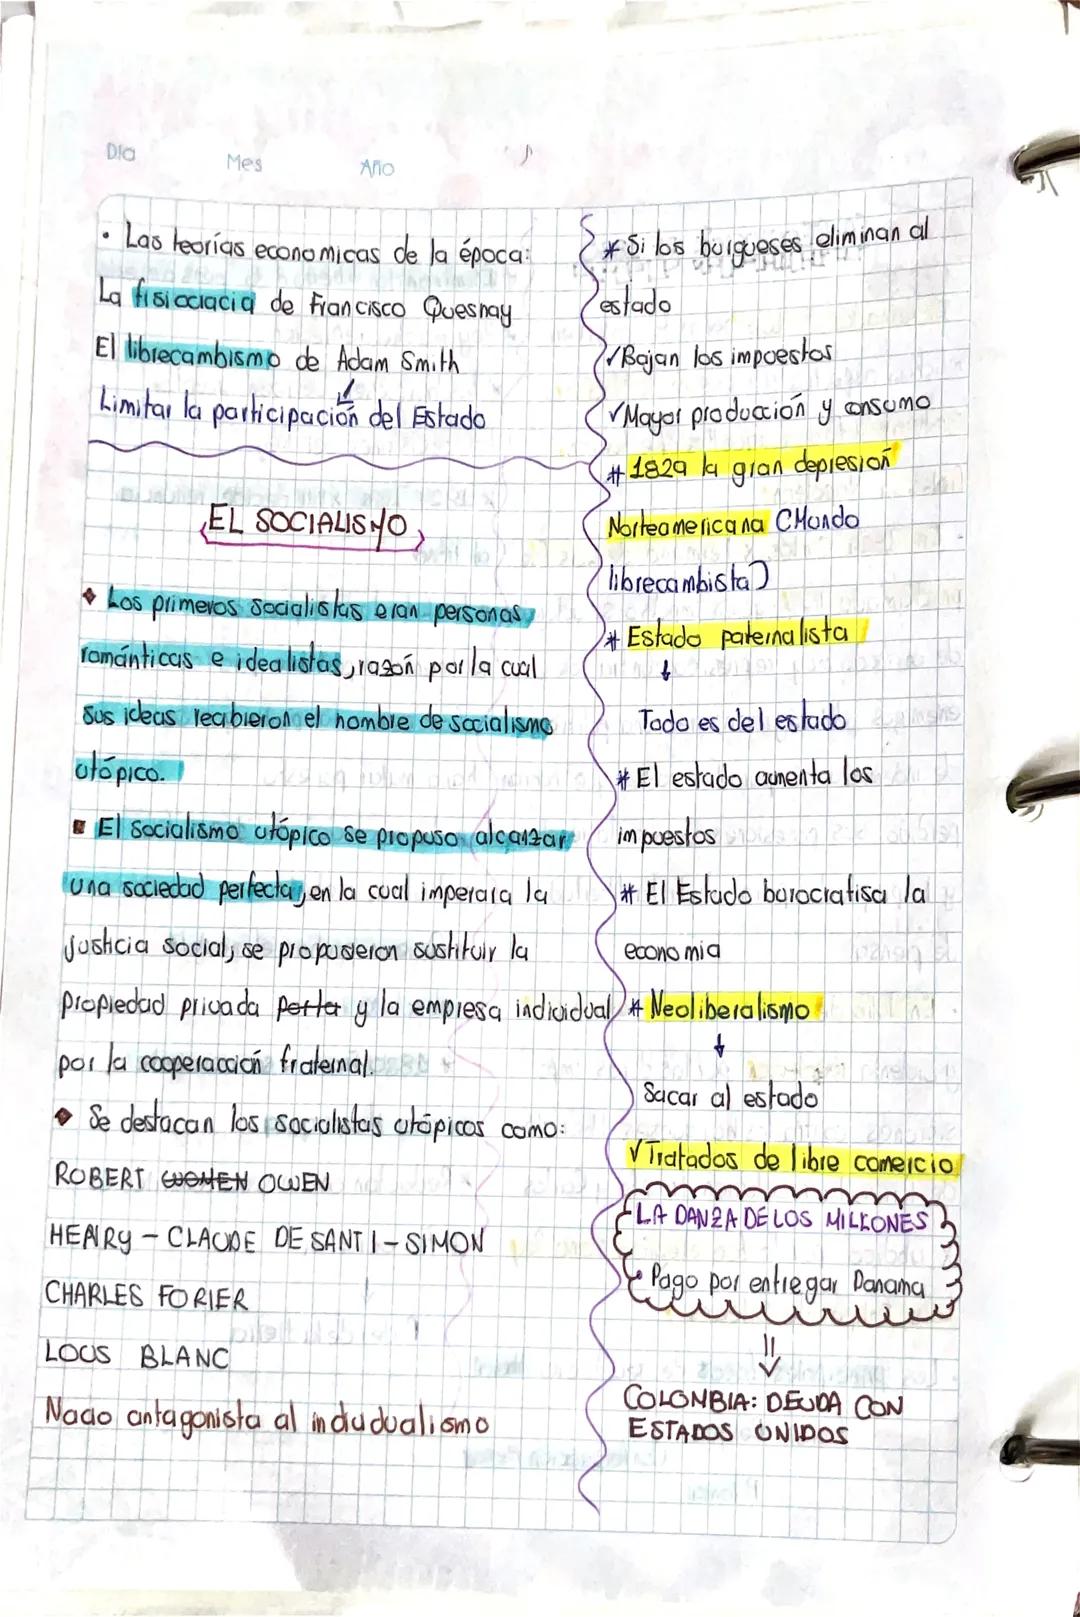 Dia Mes Año
• Las teorías economicas de la época:
La fisiocracia de Francisco Quesnay
El librecambismo de Adam Smith
↓
Limitar la participación del Estado
EL SOCIALISMO
Los primeros socialistas eran personas
románticas e idealistas, razón por la cual
sus ideas recibieron el nombre de socialismo
utópico.
El socialismo utópico se propuso alcanzar
una sociedad perfecta, en la cual imperara la
justicia social, se propusieron sustituir la
propiedad privada y la empresa individual
por la cooperacción fraternal.
Se destacan los socialistas utópicos como:
ROBERT WOMEN OWEN
HENRY - CLAUDE DE SANTI - SIMON
CHARLES FORIER
LOUS BLANC
Nacio antagonista al indudualismo
* Si los burgueses eliminan al
estado
✓ Bajan los impuestos
✓ Mayor producción y consumo
# 1829 la gran depresión
Norteamericana (Mundo
librecambista)
# Estado paternalista
↓
Todo es del estado
# El estado aumenta los
impuestos
# El Estado burocratisa la
economia
# Neoliberalismo
↓
Sacar al estado
✓ Tratados de libre comercio
LA DANZA DE LOS MILLONES
• Pago por entregar Panama
⇓
COLOMBIA: DEUDA CON
ESTADOS UNIDOS